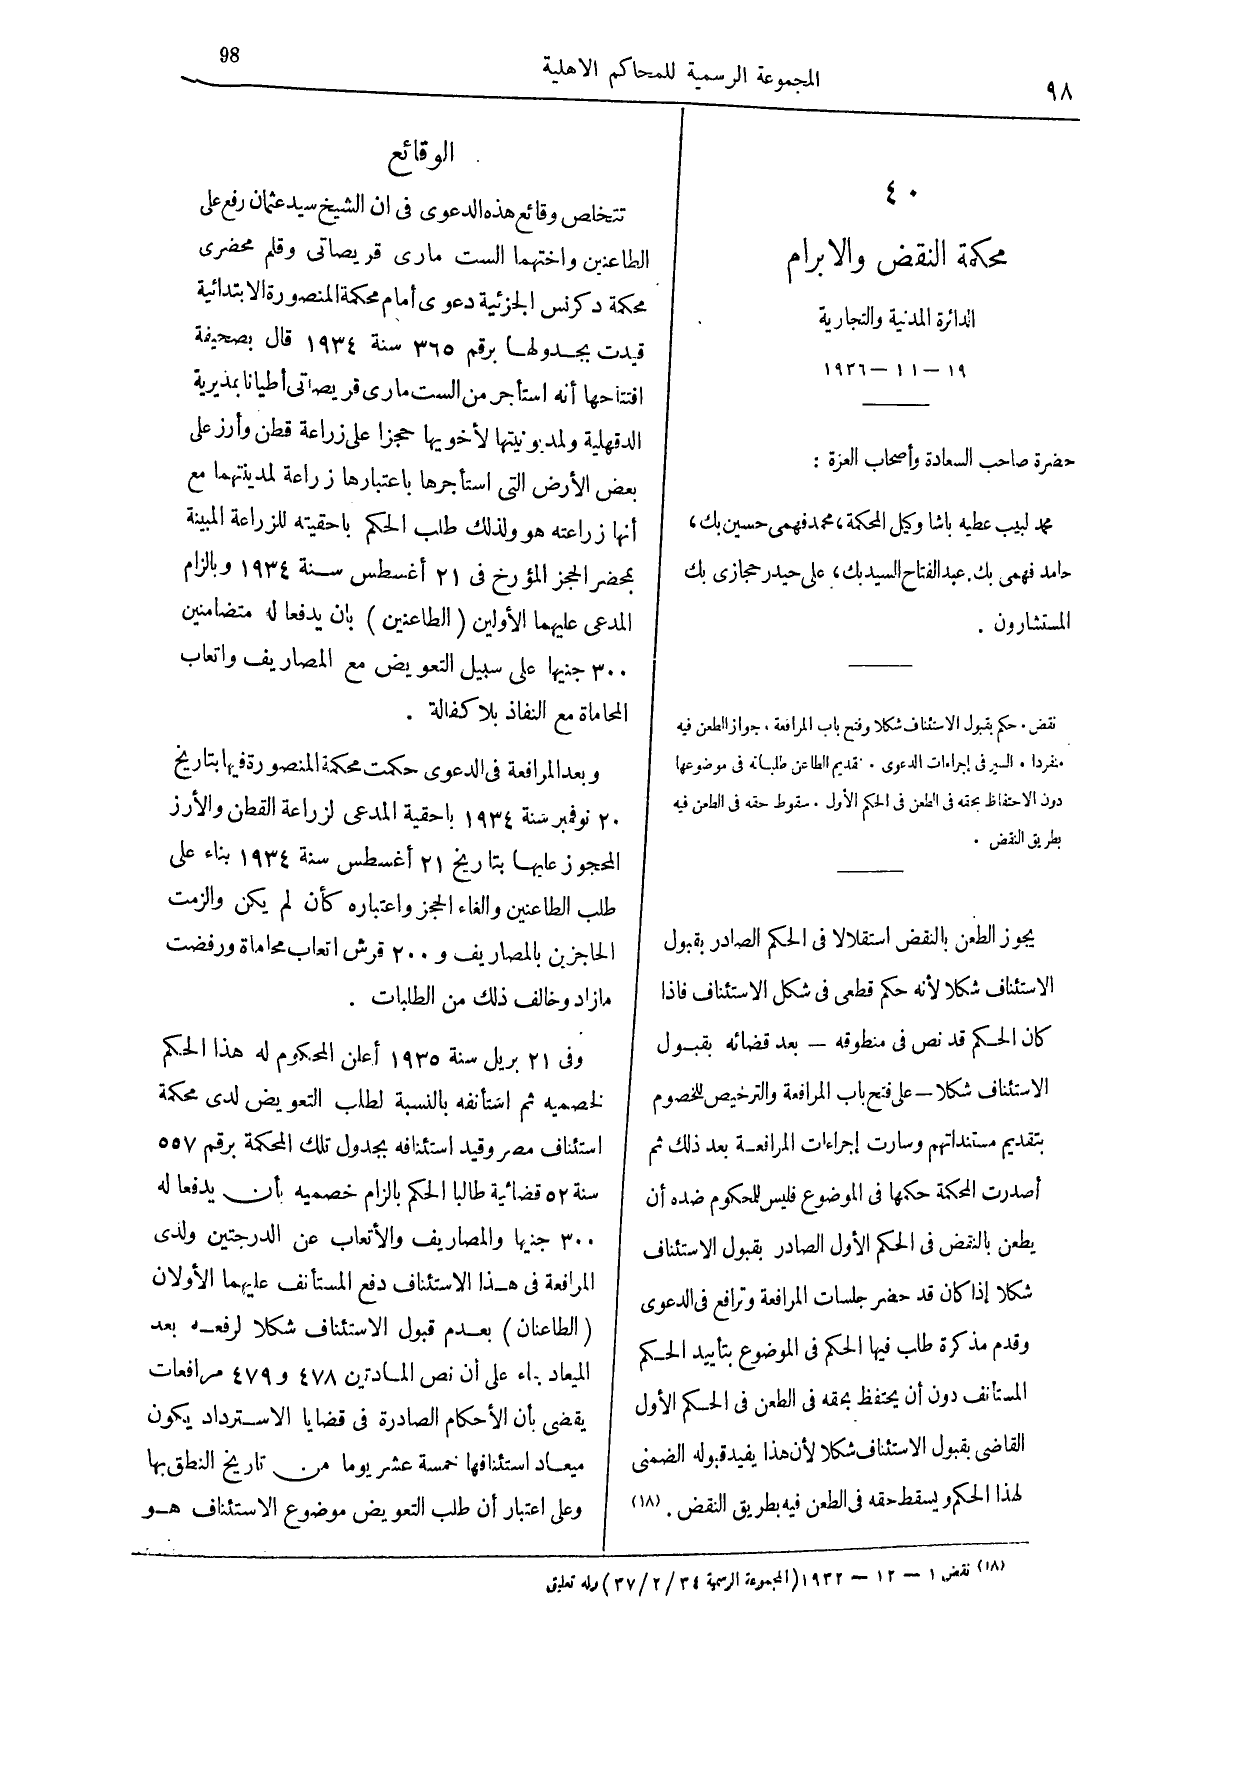 98
المجموعة الرسمية للمحاكم الاهلية
٩٨
٤٠
محكمة النقض والابرام
الدائرة المدنية والتجارية
١٩ – ١١ – ١٩٣٦
حضرة صاحب السعادة وأصحاب العزة :
محمد لبيب عطيه باشا وكيل المحكمة، محمد فهمى حسين بك،
حامد فهمى بك، عبد الفتاح السيد بك، على حيدر حجازى بك
المستشارون .
نقض . حكم بقبول الاستئناف شكلا وفتح باب المرافعة . جواز الطعن فيه
منفردا . السير فى إجراءات الدعوى . تقديم الطاعن طلباته فى موضوعها
دون الاحتفاظ بحقه فى الطعن فى الحكم الأول . سقوط حقه فى الطعن فيه
بطريق النقض .
يجوز الطعن بالنقض استقلالا فى الحكم الصادر بقبول
الاستئناف شكلا لأنه حكم قطعى فى شكل الاستئناف فاذا
كان الحكم قد نص فى منطوقه – بعد قضائه بقبول
الاستئناف شكلا – على فتح باب المرافعة والترخيص للخصوم
بتقديم مستنداتهم وسارت إجراءات المرافعة بعد ذلك ثم
أصدرت المحكمة حكمها فى الموضوع فليس للمحكوم ضده أن
يطعن بالنقض فى الحكم الأول الصادر بقبول الاستئناف
شكلا إذا كان قد حضر جلسات المرافعة وترافع فى الدعوى
وقدم مذكرة طلب فيها الحكم فى الموضوع بتأييد الحكم
المستأنف دون أن يحتفظ بحقه فى الطعن فى الحكم الأول
القاضى بقبول الاستئناف شكلا لأن هذا يفيد قبوله الضمنى
لهذا الحكم ويسقط حقه فى الطعن فيه بطريق النقض . (١٨)
الوقائع
تتخلص وقائع هذه الدعوى فى ان الشيخ سيد عثمان رفع على
الطاعنين واختهما الست مارى قريصاتى وقلم محضرى
محكمة دكرنس الجزئية دعوى أمام محكمة المنصورة الابتدائية
قيدت بجدولها برقم ٣٦٥ سنة ١٩٣٤ قال بصحيفة
افتتاحها أنه استأجر من الست مارى قريصاتى أطيانا بمديرية
الدقهلية ولمديونيتها لأخويها حجزا على زراعة قطن وأرز على
بعض الأرض التى استأجرها باعتبارها زراعة لمدينتهما مع
أنها زراعته هو ولذلك طلب الحكم باحقيته للزراعة المبينة
بمحضر الحجز المؤرخ فى ٢١ أغسطس سنة ١٩٣٤ وبالزام
المدعى عليهما الأولين (الطاعنين) بان يدفعا له متضامنين
٣٠٠ جنيها على سبيل التعويض مع المصاريف واتعاب
المحاماة مع النفاذ بلا كفالة .
وبعد المرافعة فى الدعوى حكمت محكمة المنصورة فيها بتاريخ
٢٠ نوفمبر سنة ١٩٣٤ باحقية المدعى لزراعة القطن والأرز
المحجوز عليها بتاريخ ٢١ أغسطس سنة ١٩٣٤ بناء على
طلب الطاعنين والغاء الحجز واعتباره كأن لم يكن والزمت
الحاجزين بالمصاريف و ٢٠٠ قرش اتعاب محاماة ورفضت
مازاد وخالف ذلك من الطلبات .
وفى ٢١ بريل سنة ١٩٣٥ أعلن المحكوم له هذا الحكم
لخصميه ثم استأنفه بالنسبة لطلب التعويض لدى محكمة
استئناف مصر وقيد استئنافه بجدول تلك المحكمة برقم ٥٥٧
سنة ٥٢ قضائية طالبا الحكم بالزام خصميه بأن يدفعا له
٣٠٠ جنيها والمصاريف والأتعاب عن الدرجتين ولدى
المرافعة فى هذا الاستئناف دفع المستأنف عليهما الأولان
(الطاعنان) بعدم قبول الاستئناف شكلا لرفعه بعد
الميعاد بناء على أن نص المادتين ٤٧٨ و ٤٧٩ مرافعات
يقضى بأن الأحكام الصادرة فى قضايا الاسترداد يكون
ميعاد استئنافها خمسة عشر يوما من تاريخ النطق بها
وعلى اعتبار أن طلب التعويض موضوع الاستئناف هو
(١٨) نقض ١ – ١٢ – ١٩٣٢ (المجموعة الرسمية ٣٤/٢/٣٧) وله تعليق